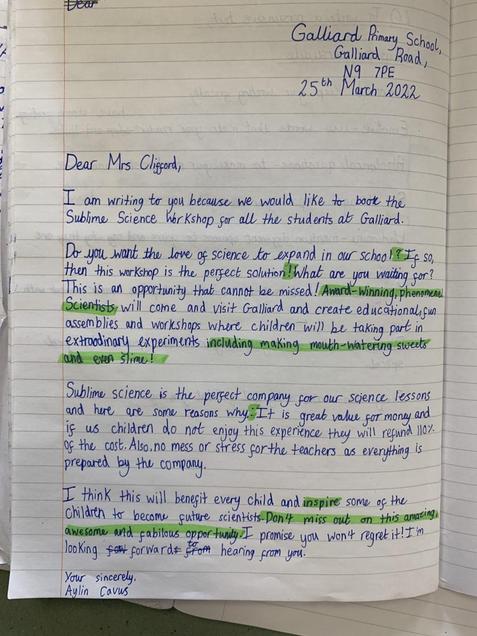 Dear
Galliard Primary School,
Galliard Road,
N9 7PE
25th March 2022
Dear Mrs Cligcord,
I am writing to you because we would like to book the
Sublime Science Workshop for all the students at Galliard.
Do you want the love of science to expand in our school!? If so,
then this workshop is the perfect solution! What are you waiting for?
This is an opportunity that cannot be missed! Award-winning, phenomenal
Scientists will come and visit Galliard and create educational, fun
assemblies and workshops where children will be taking part in
extraodinary experiments including making mouth-watering sweets
and even slime!
Sublime science is the perfect company for our science lessons
and here are some reasons why: It is great value for money and
if us children do not enjoy this experience they will refund 110%
of the cost. Also, no mess or stress for the teachers as everything is
prepared by the company.
I think this will benefit every child and inspire some of the
children to become future scientists. Don't miss out on this amazing,
awesome and fabilous opportunity. I promise you won't regret it! I'm
looking forward to hearing from you.
Your sincerely,
Aylin Cavus